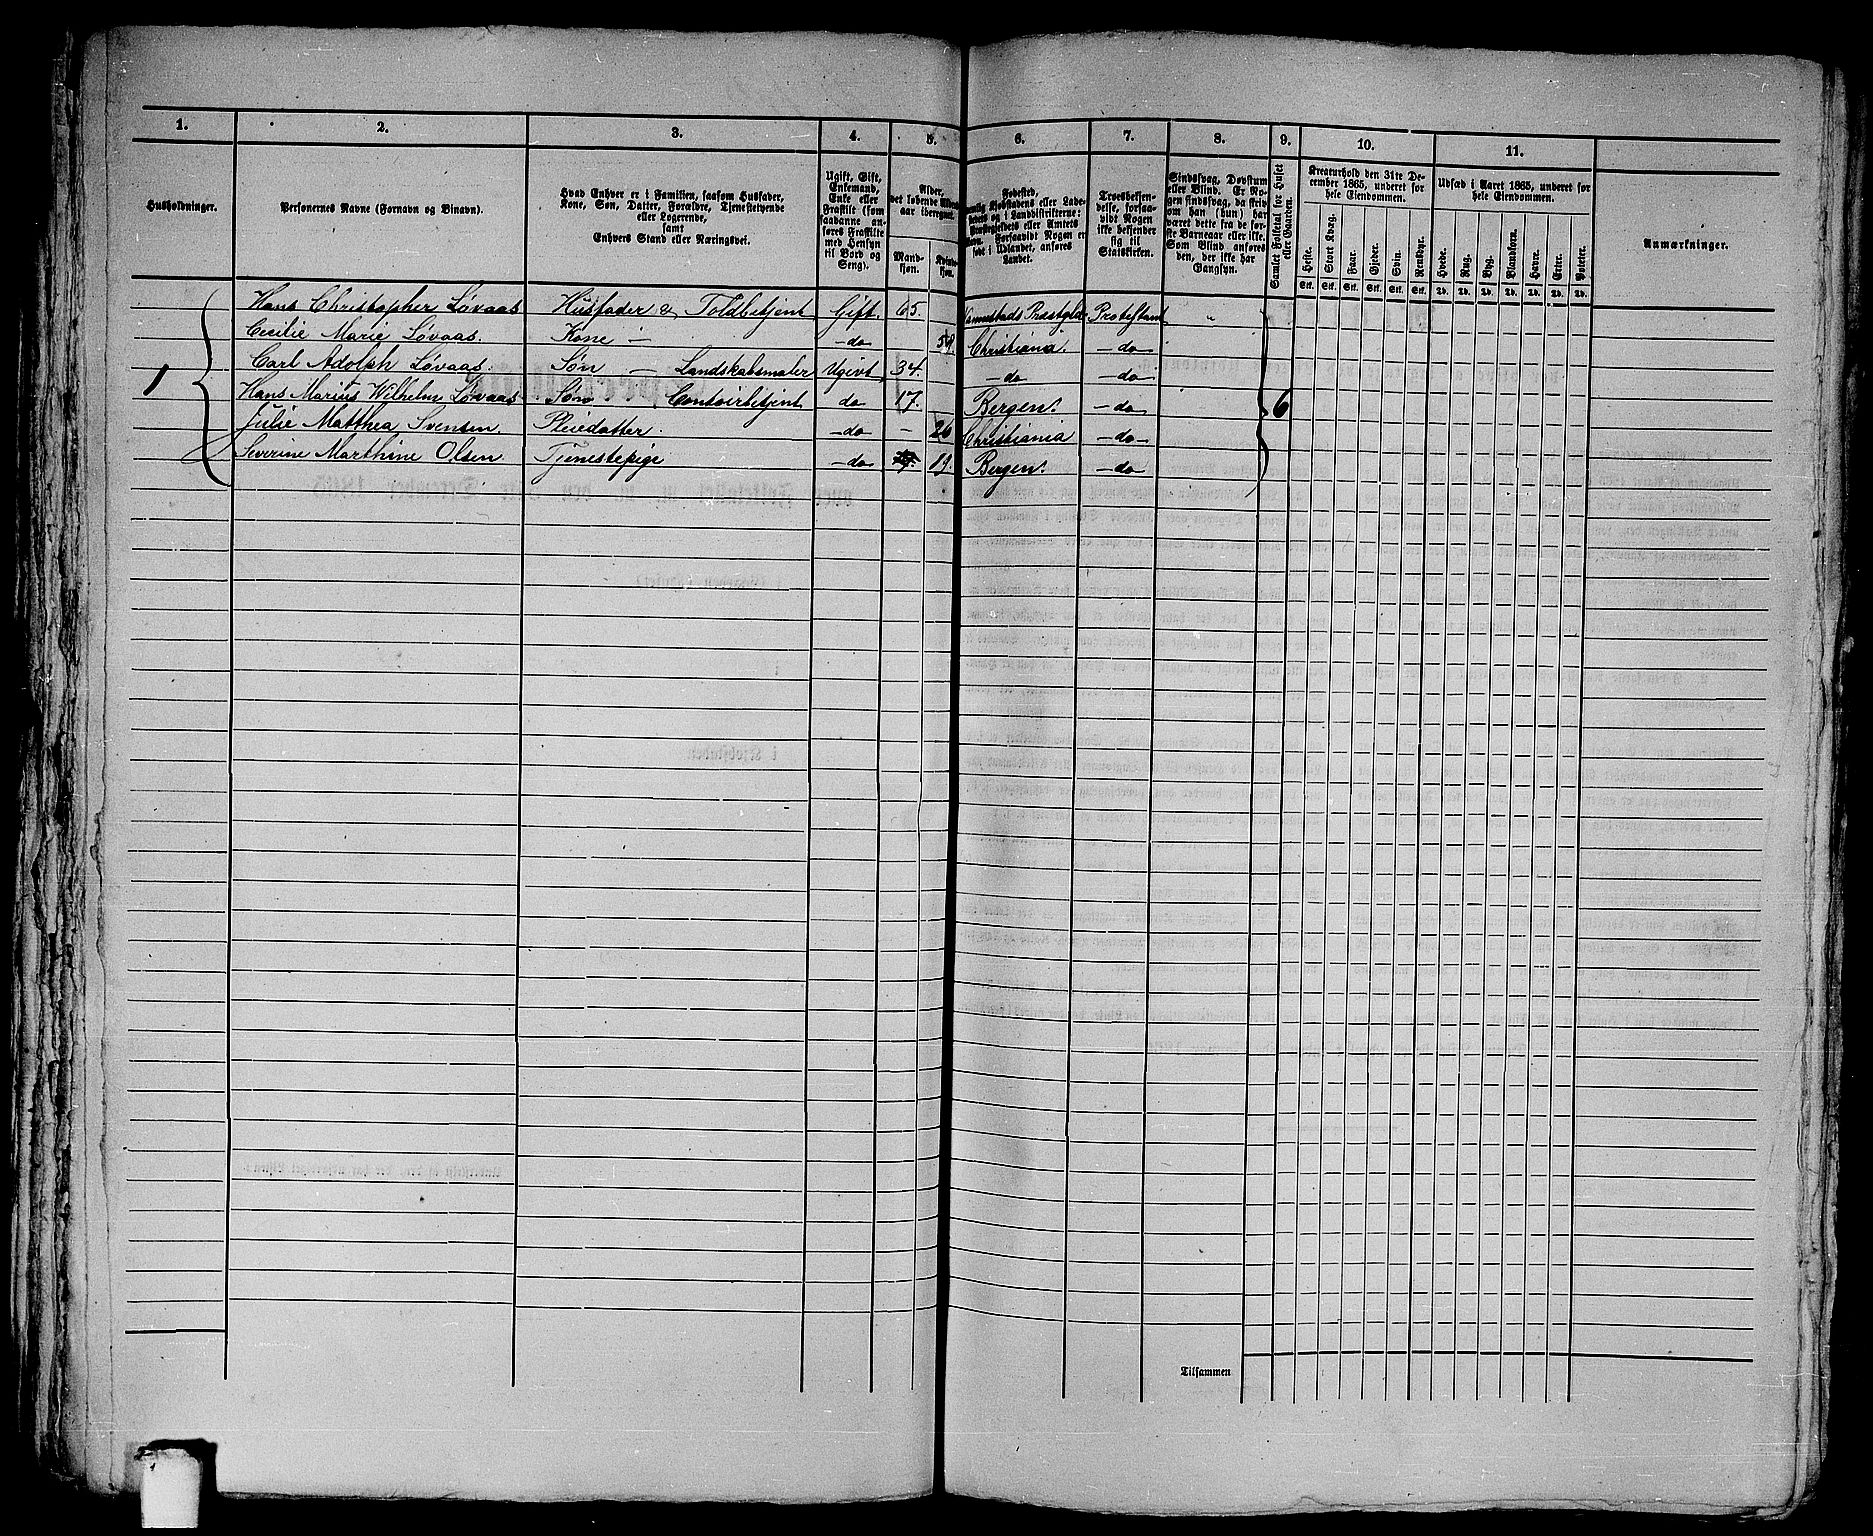 1. 2. 3. 4. 5. 6. 7. 8. 9. 10. 11.
Husholdninger.
Personernes Navne (Fornavn og Binavn).
Hvad Enhver er i Familien, saasom Husfader,
Kone, Søn, Datter, Forældre, Tjenestetyende
eller Logerende,
samt
Enhvers Stand eller Næringsvei.
Ugift, Gift,
Enkemand,
Enke eller
Fraskilt (som
saadanne an-
føres Fraskilte
med Hensyn
til Bord og
Seng).
Alder,
det løbende Alders-
aar iberegnet.
Mand-
kjøn.
Kvinde-
kjøn.
Fødested,
Kjøbstadens eller Lade-
og i Landdistrikterne:
Præstegjeldets eller Amtets
Navn. Forsaavidt Nogen er
født i Udlandet, anføres
Landet.
Troesbekjen-
delse, forsaa-
vidt Nogen
ikke bekjender
sig til
Statskirken.
Sindssvag, Døvstum
eller Blind. Er No-
gen sindssvag, da skriv
om han (hun) har
været dette fra de før-
ste Barneaar eller ikke.
Som Blind anføres
den, der ikke har
Gangsyn.
Samlet Folketal for Huset
eller Gaarden.
Kreaturhold den 31te De-
cember 1865, underet for
hele Eiendommen.
Heste. Stort Kvæg. Faar. Gjeder. Svin. Rensdyr.
Stk. Stk. Stk. Stk. Stk. Stk.
Udsæd i Aaret 1865, underet for
hele Eiendommen.
Hvede. Rug. Byg. Blandkorn. Havre. Erter. Poteter.
Td. Td. Td. Td. Td. Td. Td.
Anmærkninger.
Hans Christopher Løvaas Husfader & Toldbetjent Gift. 65. Præstgld. Protestant "
Cecilie Marie Løvaas. Kone – –do 58. Christiania. –do
1 Carl Adolph Løvaas. Søn – Landskabsmaler Ugivt 34. –do –do
Hans Marius Wilhelm Løvaas Søn Contoirbetjent do 17. Bergen. –do 6
Julie Matthea Svensen. Pleiedatter. –do – 26 Christiania –do–
Severine Marthine Olsen Tjenestepige –do 19. Bergen. –do
Tilsammen